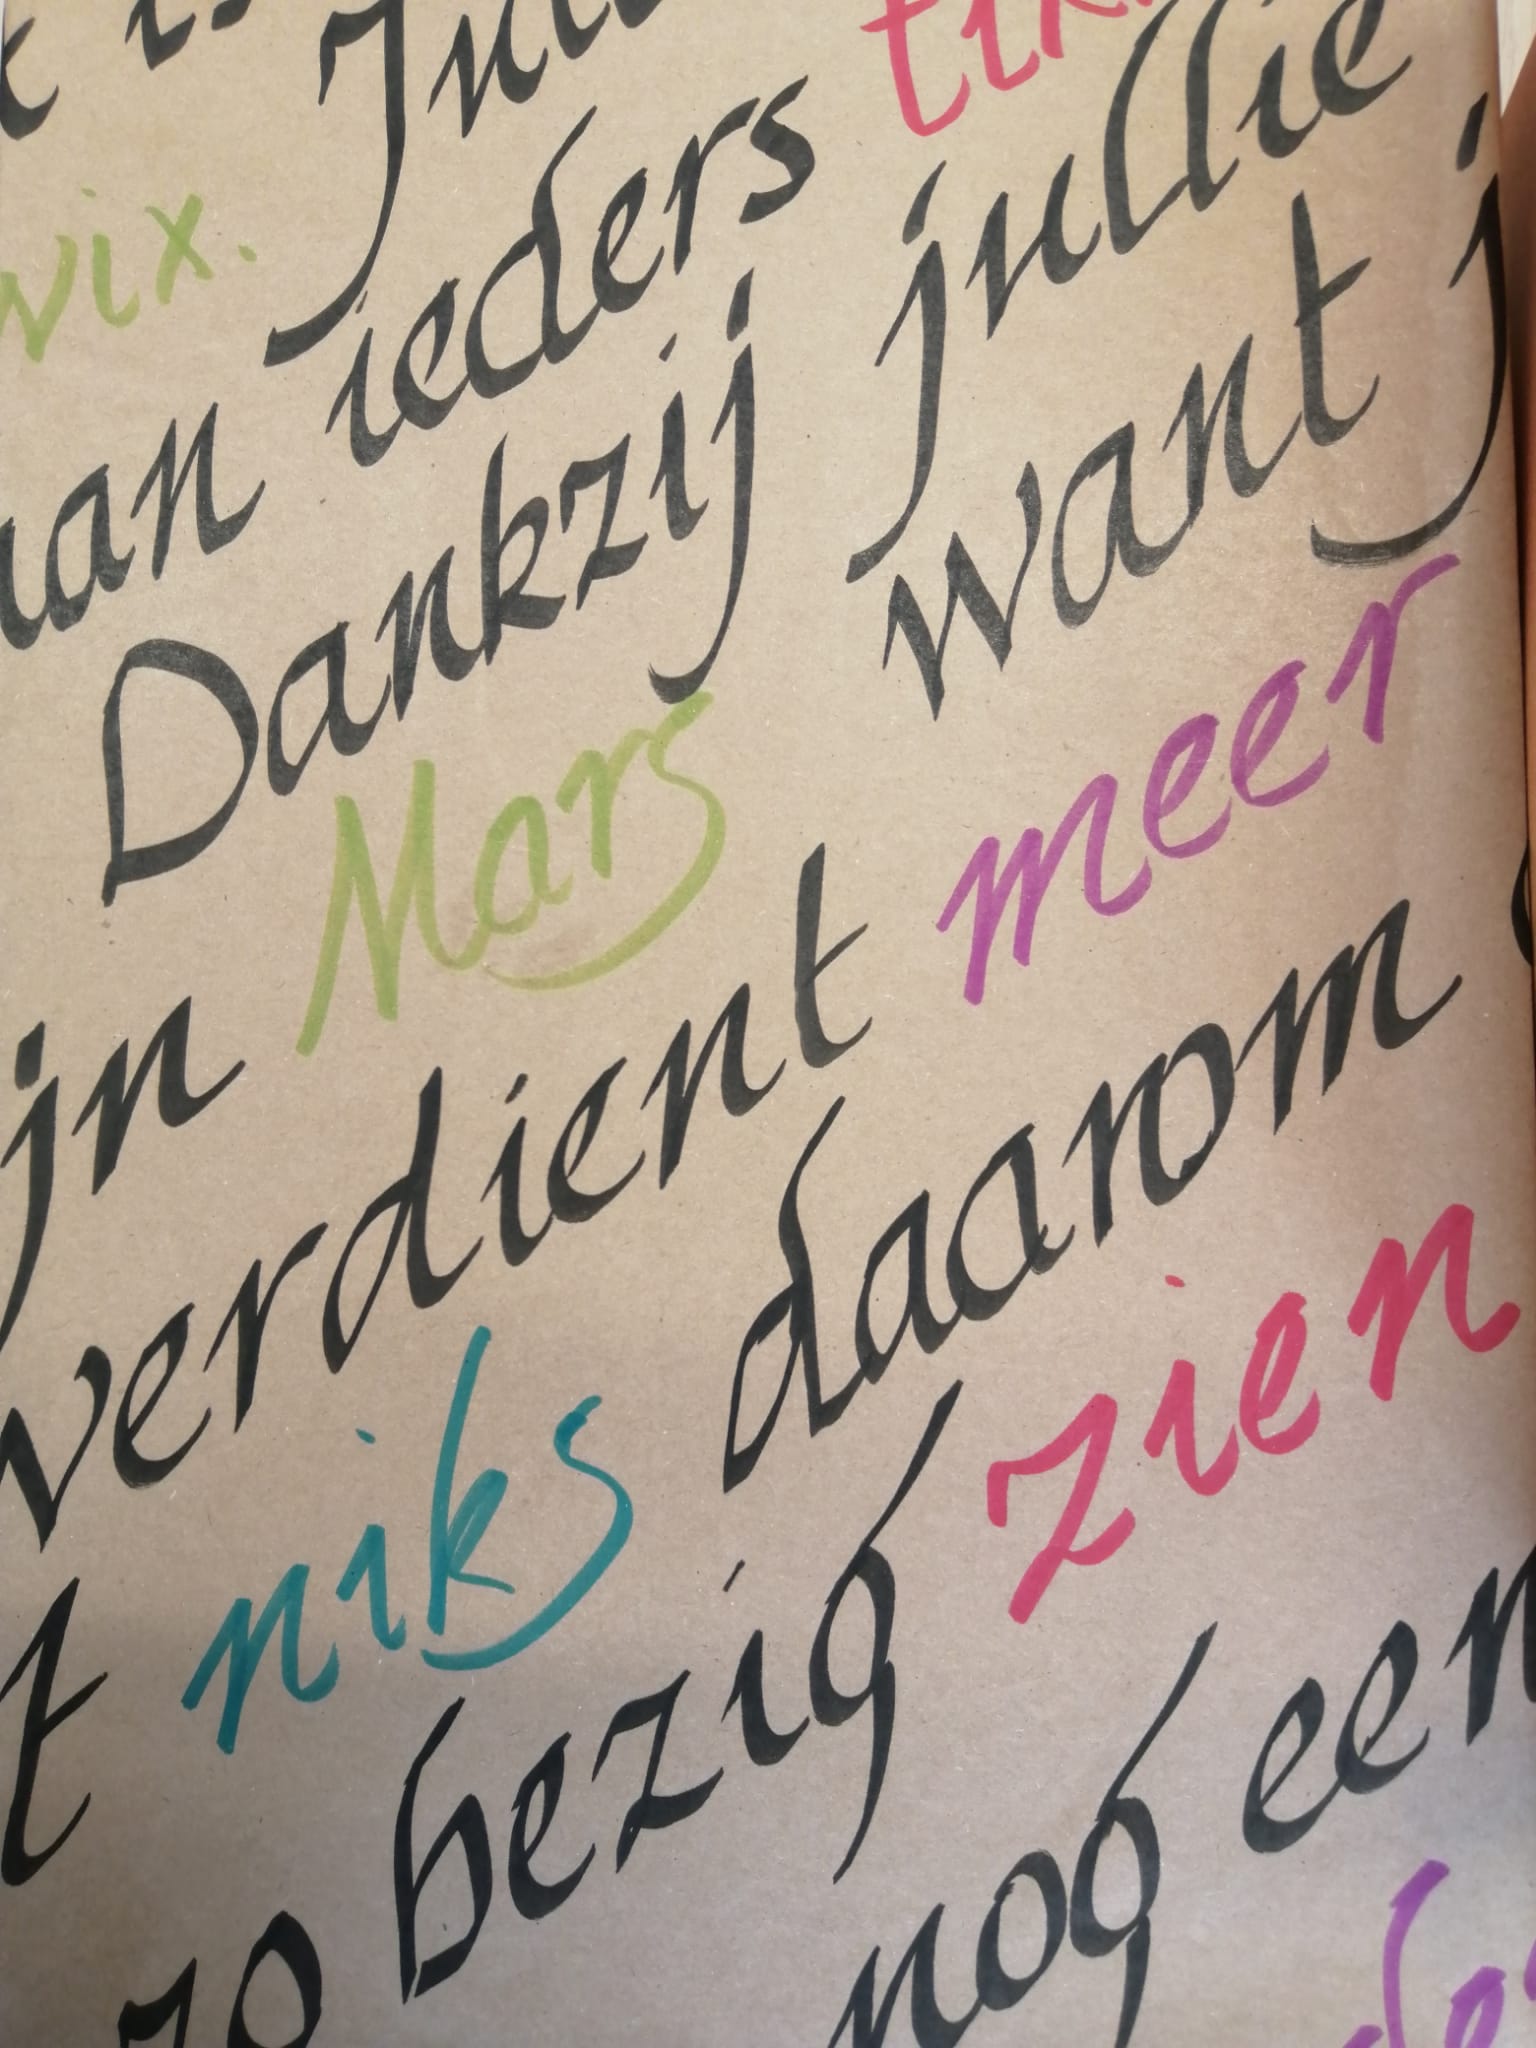 wix. Jul
aan ieders tik
Dankzij jullie
jn Mars want j
verdient meer
t niks daarom
zo bezig zien
nog een